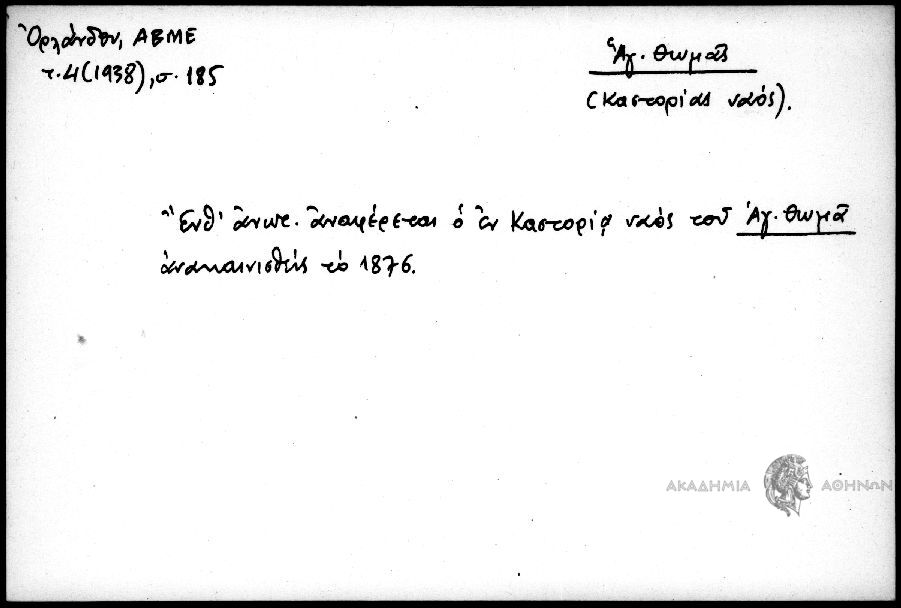 Ὀρλάνδου, ΑΒΜΕ
τ. 4 (1938), σ. 185
Ἅγ. Θωμᾶς
(Καστορίας ναός).
Ἔνθ' ἄνωτ. ἀναφέρεται ὁ ἐν Καστορίᾳ ναός τοῦ Ἁγ. Θωμᾶ
ἀνακαινισθείς τό 1876.
ΑΚΑΔΗΜΙΑ ΑΘΗΝΩΝ